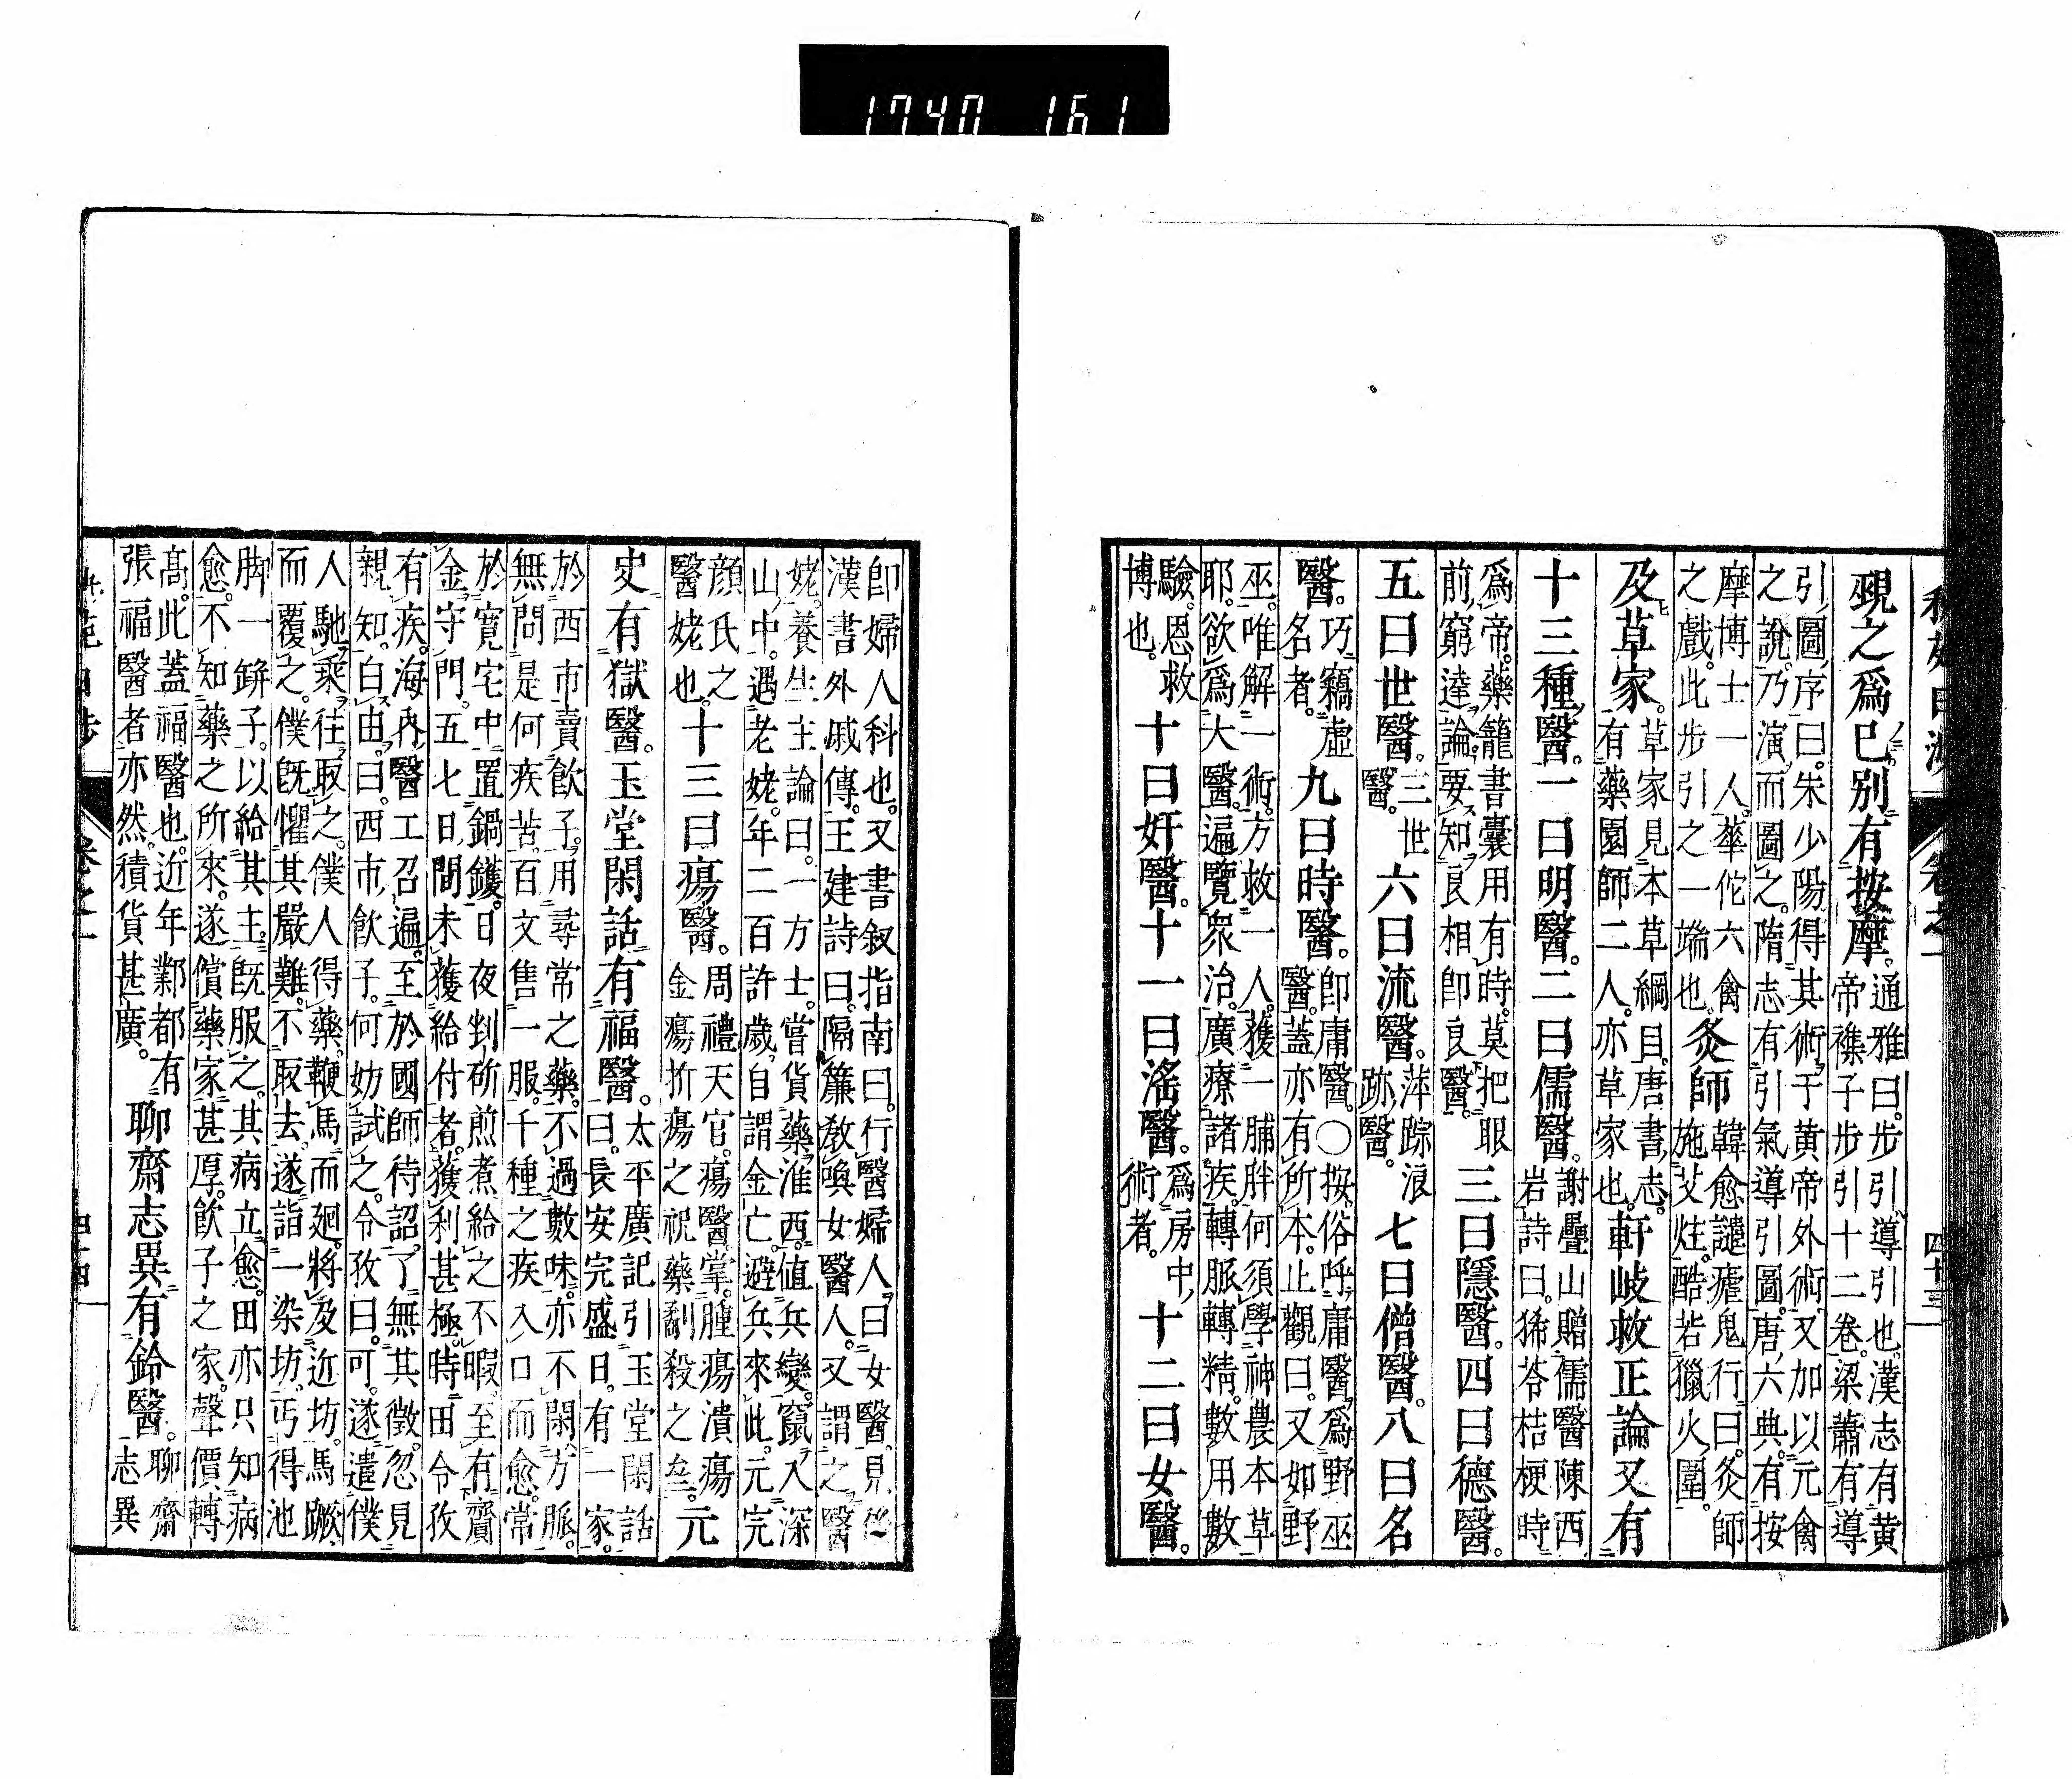 1740 161
卷之一
四十三
覡之爲已。別有按摩。通雅曰。步引導引也。漢志有黄
帝襍子步引十二卷。梁蕭有導
引圖序曰。朱少陽得其術于黄帝外術。又加以元禽
之說。乃演而圖之。隋志有引氣導引圖。唐六典。有按
摩博士一人。華佗六禽
之戲。此步引之一端也。灸師韓愈譴瘧鬼行曰。灸師
施艾炷。酷若獵火圍。
及草家。草家見本草綱目。唐書志。
有藥園師二人。亦草家也。軒岐救正論又有
十三種醫。一曰明醫。二曰儒醫。謝疊山贈儒醫陳西
岩詩曰。豨苓桔梗時
爲帝。藥籠書囊用有時。莫把眼
前窮達論。要知良相卽良醫。三曰隱醫。四曰德醫。
五曰世醫。三世
醫。六曰流醫。萍踪浪
跡醫。七曰僧醫。八曰名
醫。巧竊虛
名者。九曰時醫。卽庸醫。〇按。俗呼庸醫。爲野巫
醫。蓋亦有所本。止觀曰。又如野
巫。唯解一術。方救一人。獲一脯胖何須學神農本草
耶。欲爲大醫。遍覽衆治。廣療諸疾。轉脈轉精。數用數
驗。恩救
博也。十曰奸醫。十一曰滛醫。爲房中
術者。十二曰女醫。
卽婦人科也。又書叙指南曰。行醫婦人。曰女醫。見後
漢書外戚傳。王建詩曰。隔簾敎喚女醫人。又謂之醫
姥。養生主論曰。一方士。嘗貨藥淮西。値兵變。竄入深
山中。遇老姥。年二百許歲。自謂金亡。避兵來此。元完
顔氏之
醫姥也。十三曰瘍醫。周禮天官。瘍醫掌。腫瘍潰瘍
金瘍折瘍之祝藥劀殺之㕘。元
史有獄醫。玉堂閑話有福醫。太平廣記引玉堂閑話
曰。長安完盛日。有一家。
於西市賣飮子。用尋常之藥。不過數味。亦不閑方脈。
無問是何疾苦。百文售一服。千種之疾入口而愈。常
於寛宅中置鍋鑊。日夜剉斫煎煮給之不暇。至有齎
金守門。五七日間未獲給付者。獲利甚極。時田令孜
有疾。海內醫工召遍。至於國師待詔。了無其徴。忽見
親知。白由。曰。西市飮子。何妨試之。令孜曰。可。遂遣僕
人馳乘往取之。僕人得藥。鞭馬而廻。將及近坊。馬蹶
而覆之。僕旣懼其嚴難。不取去。遂詣一染坊。丐得池
脚一缾子。以給其主。旣服之。其病立愈。田亦只知病
愈。不知藥之所來。遂償藥家甚厚。飮子之家。聲價轉
高。此蓋福醫也。近年鄴都有
張福醫者亦然。積貨甚廣。聊齋志異有鈴醫。聊齋
志異
卷之一
四十四